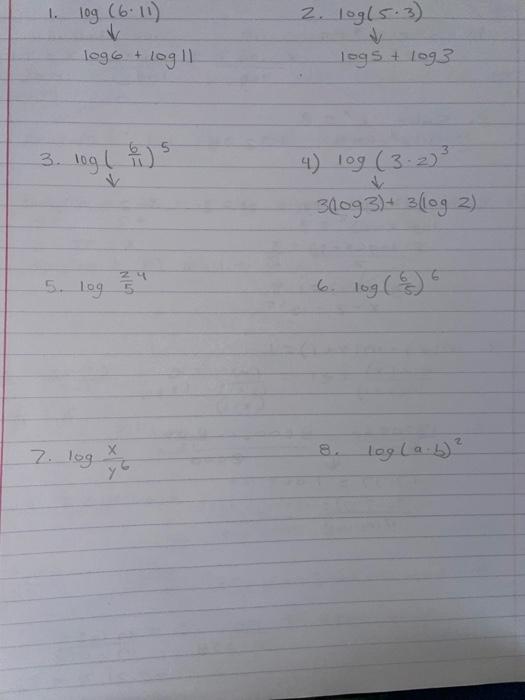 1. log (6·11) 2. log(5·3)
↓ ↓
log6 + log11 log5 + log3
3. log(6/11)^5 4) log (3·2)^3
↓ ↓
3(log3)+ 3(log 2)
5. log 2^4/5 6. log(6/5)^6
7. log x/y^6 8. log(a·b)^2